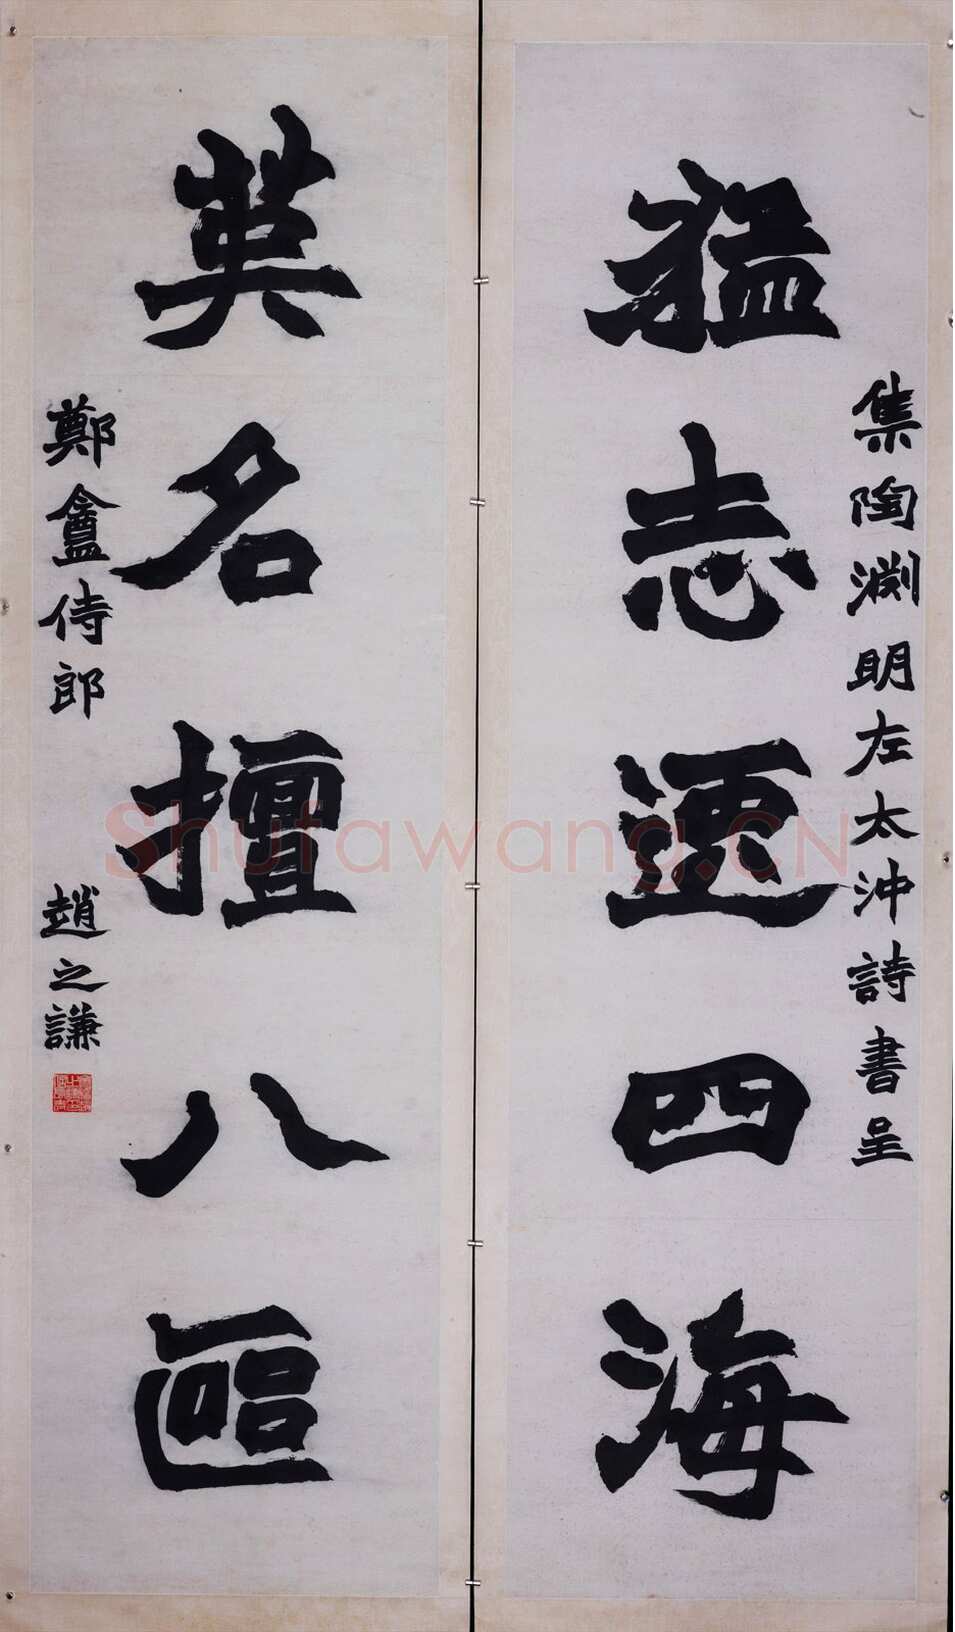 集陶淵明左太沖詩書呈
猛志逸四海
英名擅八區
鄭盦侍郎
趙之謙
Shufawang.CN